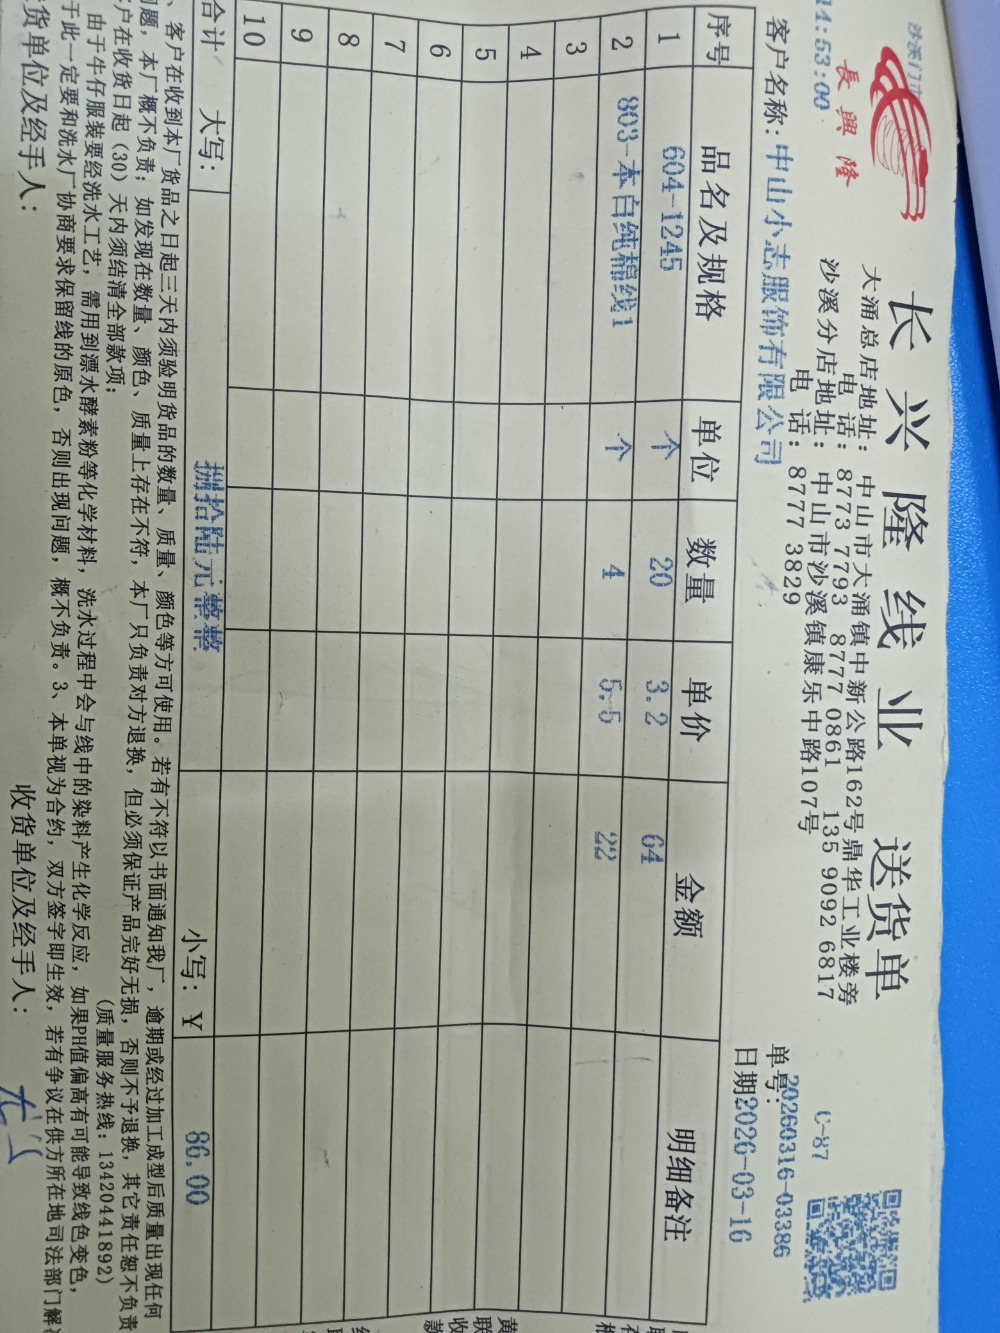 沙溪门市
14:53:00
長興隆
长兴隆线业 送货单
大涌总店地址：中山市大涌镇中新公路162号鼎华工业楼旁
电 话：8773 7793 8777 0861 135 9092 6817
沙溪分店地址：中山市沙溪镇康乐中路107号
电 话：8777 3829
C-87
单号：20260316-03386
客户名称：中山小志服饰有限公司
日期2026-03-16
序号 品名及规格 单位 数量 单价 金额 明细备注
1 604-1245 个 20 3.2 64
2 803-本白纯棉线1 个 4 5.5 22
3
4
5
6
7
8
9
10
合计 大写： 捌拾陆元整整 小写：¥ 86.00
、客户在收到本厂货品之日起三天内须验明货品的数量、质量、颜色等方可使用。若有不符以书面通知我厂，逾期或经过加工成型后质量出现任何
问题，本厂概不负责；如发现在数量、颜色、质量上存在不符，本厂只负责对方退换，但必须保证产品完好无损，否则不予退换，其它责任恕不负责
户在收货日起（30）天内须结清全部款项； （质量服务热线：13420441892）
由于牛仔服装要经洗水工艺，需用到漂水酵素粉等化学材料，洗水过程中会与线中的染料产生化学反应，如果PH值偏高有可能导致线色变色，
于此一定要和洗水厂协商要求保留线的原色，否则出现问题，概不负责。3、本单视为合约，双方签字即生效，若有争议在供方所在地司法部门解
货单位及经手人： 收货单位及经手人：